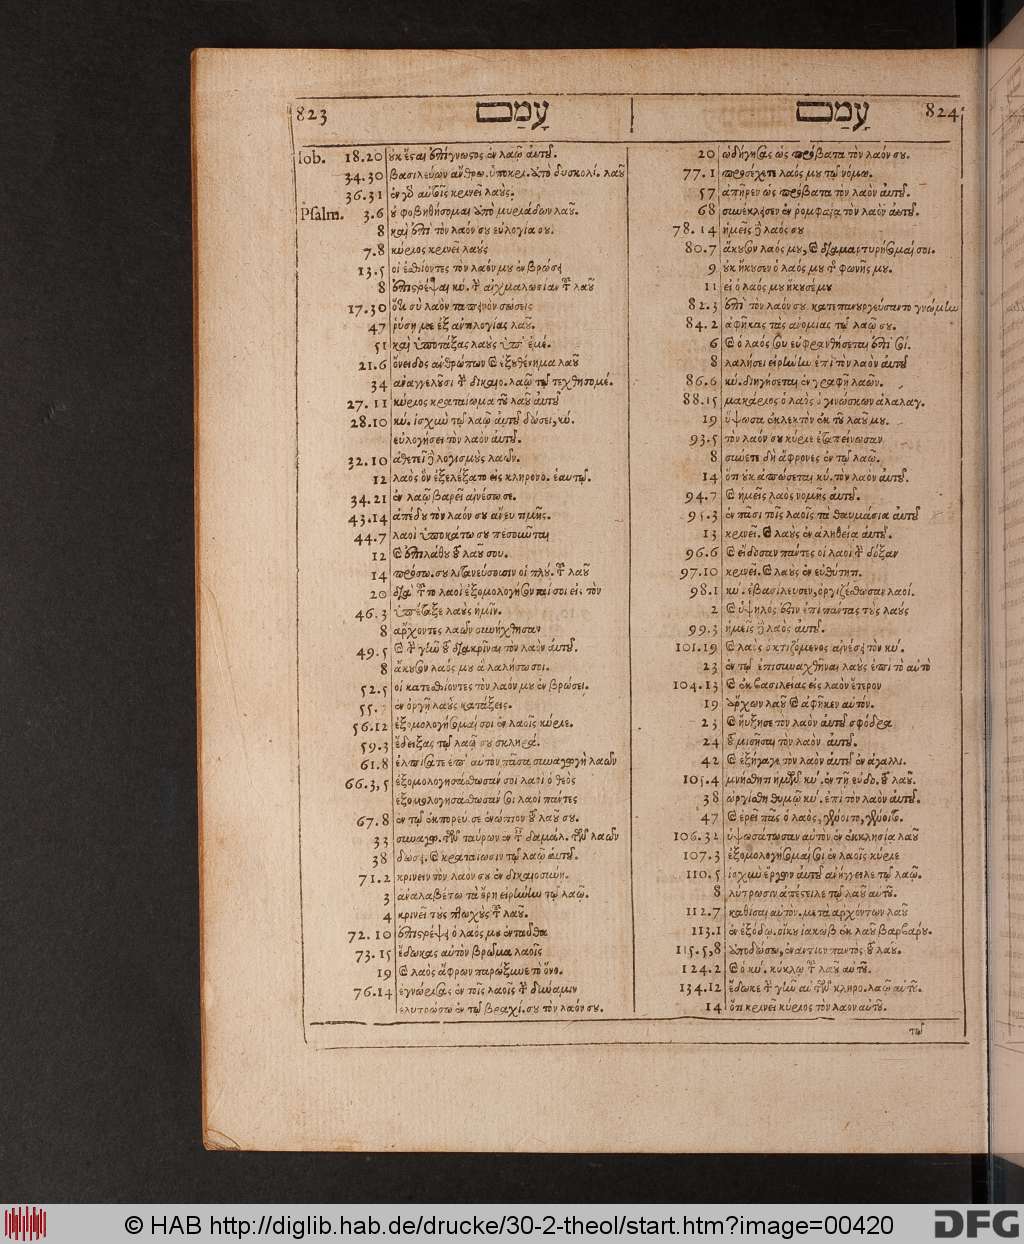 823 עָמַם עָמַם 824
Iob. 18.20 ὐκ ἔςαι ἐπίγνωςος ἐν λαῷ ἀυτοῦ.
34.30 βασιλεύων ἄνθρω. ὑποκρι. ἀπὸ δυσκολί. λαοῦ
36.31 ἐν γὸ αὐτοῖς κρινεῖ λαοὺς.
Psalm. 3.6 οὐ φοβηθήσομαι ἀπὸ μυριάδων λαοῦ.
8 καὶ ἐπὶ τὸν λαόν σου εὐλογία σου.
7.8 κύριος κρινεῖ λαούς
13.5 οἱ ἐθίοντες τὸν λαόν μου ἐν βρώσει
8 ἐπιςρέψαι κύ. τὴν αἰχμαλωσίαν τοῦ λαοῦ
17.30 ὅτι σὺ λαὸν ταπεινὸν σώσεις
47 ῥύσῃ με ἐξ ἀντιλογίας λαοῦ.
51 καὶ ὑποτάξας λαοὺς ὑπ' ἐμέ.
21.6 ὄνειδος ἀνθρώπων καὶ ἐξουθένημα λαοῦ
34 ἀναγγελοῦσι τὴν δικαιο. λαῷ τῷ τεχθησομέ.
27.11 κύριος κραταίωμα τοῦ λαοῦ ἀυτοῦ
28.10 κύ. ἰσχὺν τῷ λαῷ ἀυτοῦ δώσει, κύ.
εὐλογήσει τὸν λαὸν ἀυτοῦ.
32.10 ἀθετεῖ δὲ λογισμοὺς λαῶν.
12 λαὸς ὃν ἐξελέξατο εἰς κληρονο. ἑαυτῷ.
34.21 ἐν λαῷ βαρεῖ αἰνέσω σε.
43.14 ἀπέδου τὸν λαόν σου ἄνευ τιμῆς.
44.7 λαοὶ ὑποκάτω σου πεσοῦνται
12 καὶ ἐπιλάθου τοῦ λαοῦ σου.
14 πρόσω. σου λιτανεύσουσιν οἱ πλού. τοῦ λαοῦ
20 διὰ τοῦτο λαοὶ ἐξομολογήσονταί σοι εἰς τὸν
46.3 ὑπέταξε λαοὺς ἡμῖν.
8 ἄρχοντες λαῶν συνήχθησαν
49.5 καὶ τὴν γῆν τοῦ διακρῖναι τὸν λαὸν ἀυτοῦ.
8 ἄκουσον λαός μου καὶ λαλήσω σοι.
52.5 οἱ κατεθίοντες τὸν λαόν μου ἐν βρώσει.
55.7 ἐν ὀργῇ λαοὺς κατάξεις.
56.12 ἐξομολογήσομαί σοι ἐν λαοῖς κύριε.
59.3 ἔδειξας τῷ λαῷ σου σκληρά.
61.8 ἐλπίσατε ἐπ' αὐτὸν πᾶσα συναγωγὴ λαῶν
66.3,5 ἐξομολογησάθωσάν σοι λαοὶ ὁ θεὸς
ἐξομολογησάθωσάν σοι λαοὶ πάντες
67.8 ἐν τῷ ἐκπορεύ. σε ἐνώπιον τοῦ λαοῦ σου.
33 συναγω. τῶν ταύρων ἐν τ. δαμάλ. τῶν λαῶν
38 δώσει. καὶ κραταίωσιν τῷ λαῷ ἀυτοῦ.
71.2 κρίνειν τὸν λαόν σου ἐν δικαιοσύνῃ.
3 ἀναλαβέτω τὰ ὄρη εἰρήνην τῷ λαῷ.
4 κρινεῖ τοὺς πτωχοὺς τοῦ λαοῦ.
72.10 ἐπιςρέψει ὁ λαός μου ἐνταῦθα
73.15 ἔδωκας αὐτὸν βρῶμα λαοῖς
19 καὶ λαὸς ἄφρων παρώξυνε τὸ ὄνο.
76.14 ἐγνώρισας ἐν τοῖς λαοῖς τὴν δύναμιν
ἐλυτρώσω ἐν τῷ βραχί. σου τὸν λαόν σου.
20 ὡδήγησας ὡς πρόβατα τὸν λαόν σου.
77.1 προσέχετε λαός μου τῷ νόμῳ.
57 ἀπῆρεν ὡς πρόβατα τὸν λαὸν ἀυτοῦ.
68 συνέκλεισεν ἐν ρομφαίᾳ τὸν λαὸν ἀυτοῦ.
78.14 ἡμεῖς δὲ λαός σου
80.7 ἄκουσον λαός μου, καὶ διαμαρτυρήσομαί σοι.
9 οὐκ ἤκουσεν ὁ λαός μου τῆς φωνῆς μου.
11 εἰ ὁ λαός μου ἤκουσέ μου
82.3 ἐπὶ τὸν λαόν σου κατεπανουργεύσαντο γνώμην
84.2 ἀφῆκας τὰς ἀνομίας τῷ λαῷ σου.
6 καὶ ὁ λαός σου εὐφρανθήσεται ἐπὶ σοί.
8 λαλήσει εἰρήνην ἐπὶ τὸν λαὸν ἀυτοῦ
86.6 κύ. διηγήσεται ἐν γραφῇ λαῶν.
88.15 μακάριος ὁ λαὸς ὁ γινώσκων ἀλαλαγ.
19 ὕψωσα ἐκλεκτὸν ἐκ τοῦ λαοῦ μου.
93.5 τὸν λαόν σου κύριε ἐταπείνωσαν
8 σύνετε δὴ ἄφρονες ἐν τῷ λαῷ.
14 ὅτι οὐκ ἀπώσεται κύ. τὸν λαὸν ἀυτοῦ.
94.7 καὶ ἡμεῖς λαὸς νομῆς ἀυτοῦ.
95.3 ἐν πᾶσι τοῖς λαοῖς τὰ θαυμάσια ἀυτοῦ
13 κρινεῖ. καὶ λαοὺς ἐν ἀληθείᾳ ἀυτοῦ.
96.6 καὶ εἴδοσαν πάντες οἱ λαοὶ τὴν δόξαν
97.10 κρινεῖ. καὶ λαοὺς ἐν εὐθύτητι.
98.1 κύ. ἐβασίλευσεν, ὀργιζέθωσαν λαοί.
2 καὶ ὑψηλός ἐστιν ἐπὶ πάντας τοὺς λαοὺς
99.3 ἡμεῖς δὲ λαὸς ἀυτοῦ.
101.19 καὶ λαὸς ὁ κτιζόμενος αἰνέσει τὸν κύ.
23 ἐν τῷ ἐπισυναχθῆναι λαοὺς ἐπὶ τὸ αὐτὸ
104.13 καὶ ἐκ βασιλείας εἰς λαὸν ἕτερον
19 ἄρχων λαοῦ καὶ ἀφῆκεν αὐτόν.
23 καὶ ηὔξησε τὸν λαὸν ἀυτοῦ σφόδρα
24 τοῦ μισῆσαι τὸν λαὸν ἀυτοῦ.
42 καὶ ἐξήγαγε τὸν λαὸν ἀυτοῦ ἐν ἀγαλλι.
105.4 μνήσθητι ἡμῶν κύ. ἐν τῇ εὐδο. τοῦ λαοῦ.
38 ὠργίσθη θυμῷ κύ. ἐπὶ τὸν λαὸν ἀυτοῦ.
47 καὶ ἐρεῖ πᾶς ὁ λαὸς, γένοιτο, γένοιτο.
106.32 ὑψωσάτωσαν αὐτὸν ἐν ἐκκλησίᾳ λαοῦ
107.3 ἐξομολογήσομαί σοι ἐν λαοῖς κύριε
110.5 ἰσχὺν ἔργων ἀυτοῦ ἀνήγγειλε τῷ λαῷ.
8 λύτρωσιν ἀπέςειλε τῷ λαῷ αὐτοῦ.
112.7 καθίσαι αὐτὸν. μετὰ ἀρχόντων λαοῦ
113.1 ἐν ἐξόδῳ. οἴκου ἰακὼβ ἐκ λαοῦ βαρβάρου.
115.5,8 ἀποδώσω, ἐναντίον παντὸς τοῦ λαοῦ.
124.2 καὶ ὁ κύ. κύκλῳ τοῦ λαοῦ αὐτοῦ.
134.12 ἔδωκε τὴν γῆν αὐτῶν κληρο. λαῷ αὐτοῦ.
14 ὅτι κρινεῖ κύριος τὸν λαὸν αὐτοῦ.
τῷ
© HAB http://diglib.hab.de/drucke/30-2-theol/start.htm?image=00420
DFG